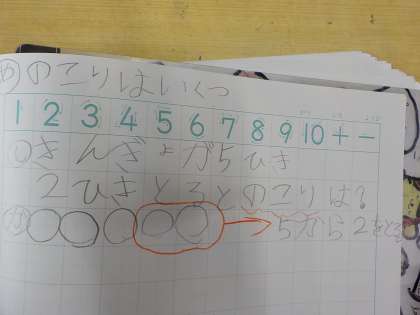 め のこりはいくつ
1 2 3 4 5 6 7 8 9 10 + −
① きんぎょが5ひき
2ひきとるとのこりは?
5から2をとる